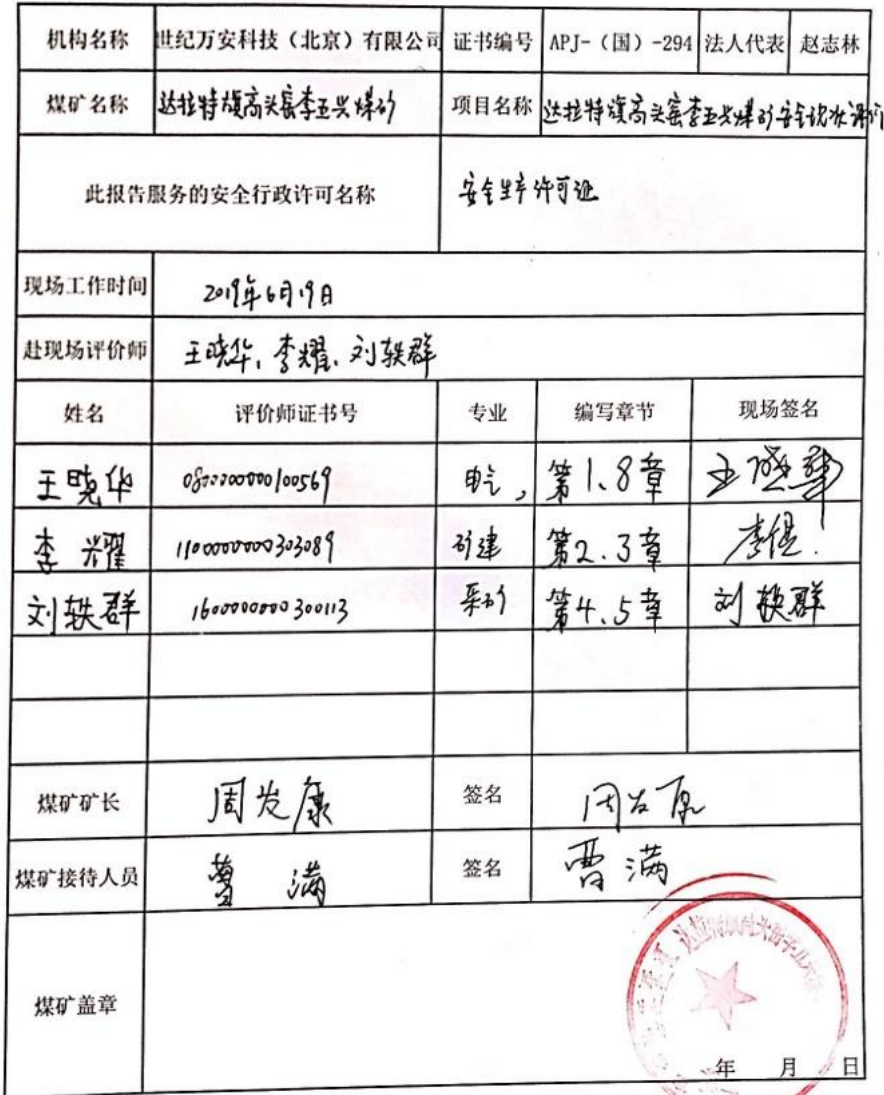 机构名称 世纪万安科技（北京）有限公司 证书编号 APJ-（国）-294 法人代表 赵志林
煤矿名称 达拉特旗高头窑李五兴煤矿 项目名称 达拉特旗高头窑李五兴煤矿安全现状评价
此报告服务的安全行政许可名称 安全生产许可证
现场工作时间 2019年6月19日
赴现场评价师 王晓华、李耀、刘轶群
姓名 评价师证书号 专业 编写章节 现场签名
王晓华 0800000000100569 电气 第1、8章 王晓华
李耀 1100000000303089 矿建 第2、3章 李耀
刘轶群 1600000000300113 采矿 第4、5章 刘轶群
煤矿矿长 周发康 签名 周发康
煤矿接待人员 曹满 签名 曹满
煤矿盖章
年 月 日